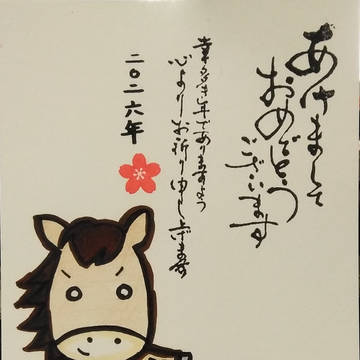 あけまして
おめでとう
ございます
幸多き年でありますよう
心よりお祈り申し上げます
二〇二六年